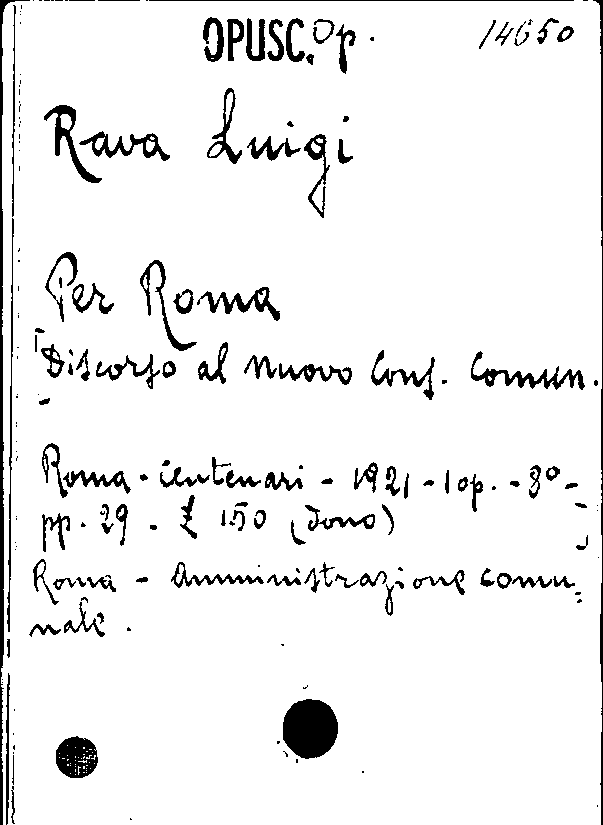 OPUSC. Op. 14650
Rava Luigi
Per Roma
Discorso al nuovo Cons. Comun.
Roma - Centenari - 1921 - 1 op. - 8° -
pp. 29 - £ 150 (Dono)
Roma - Amministrazione comu=
nale.